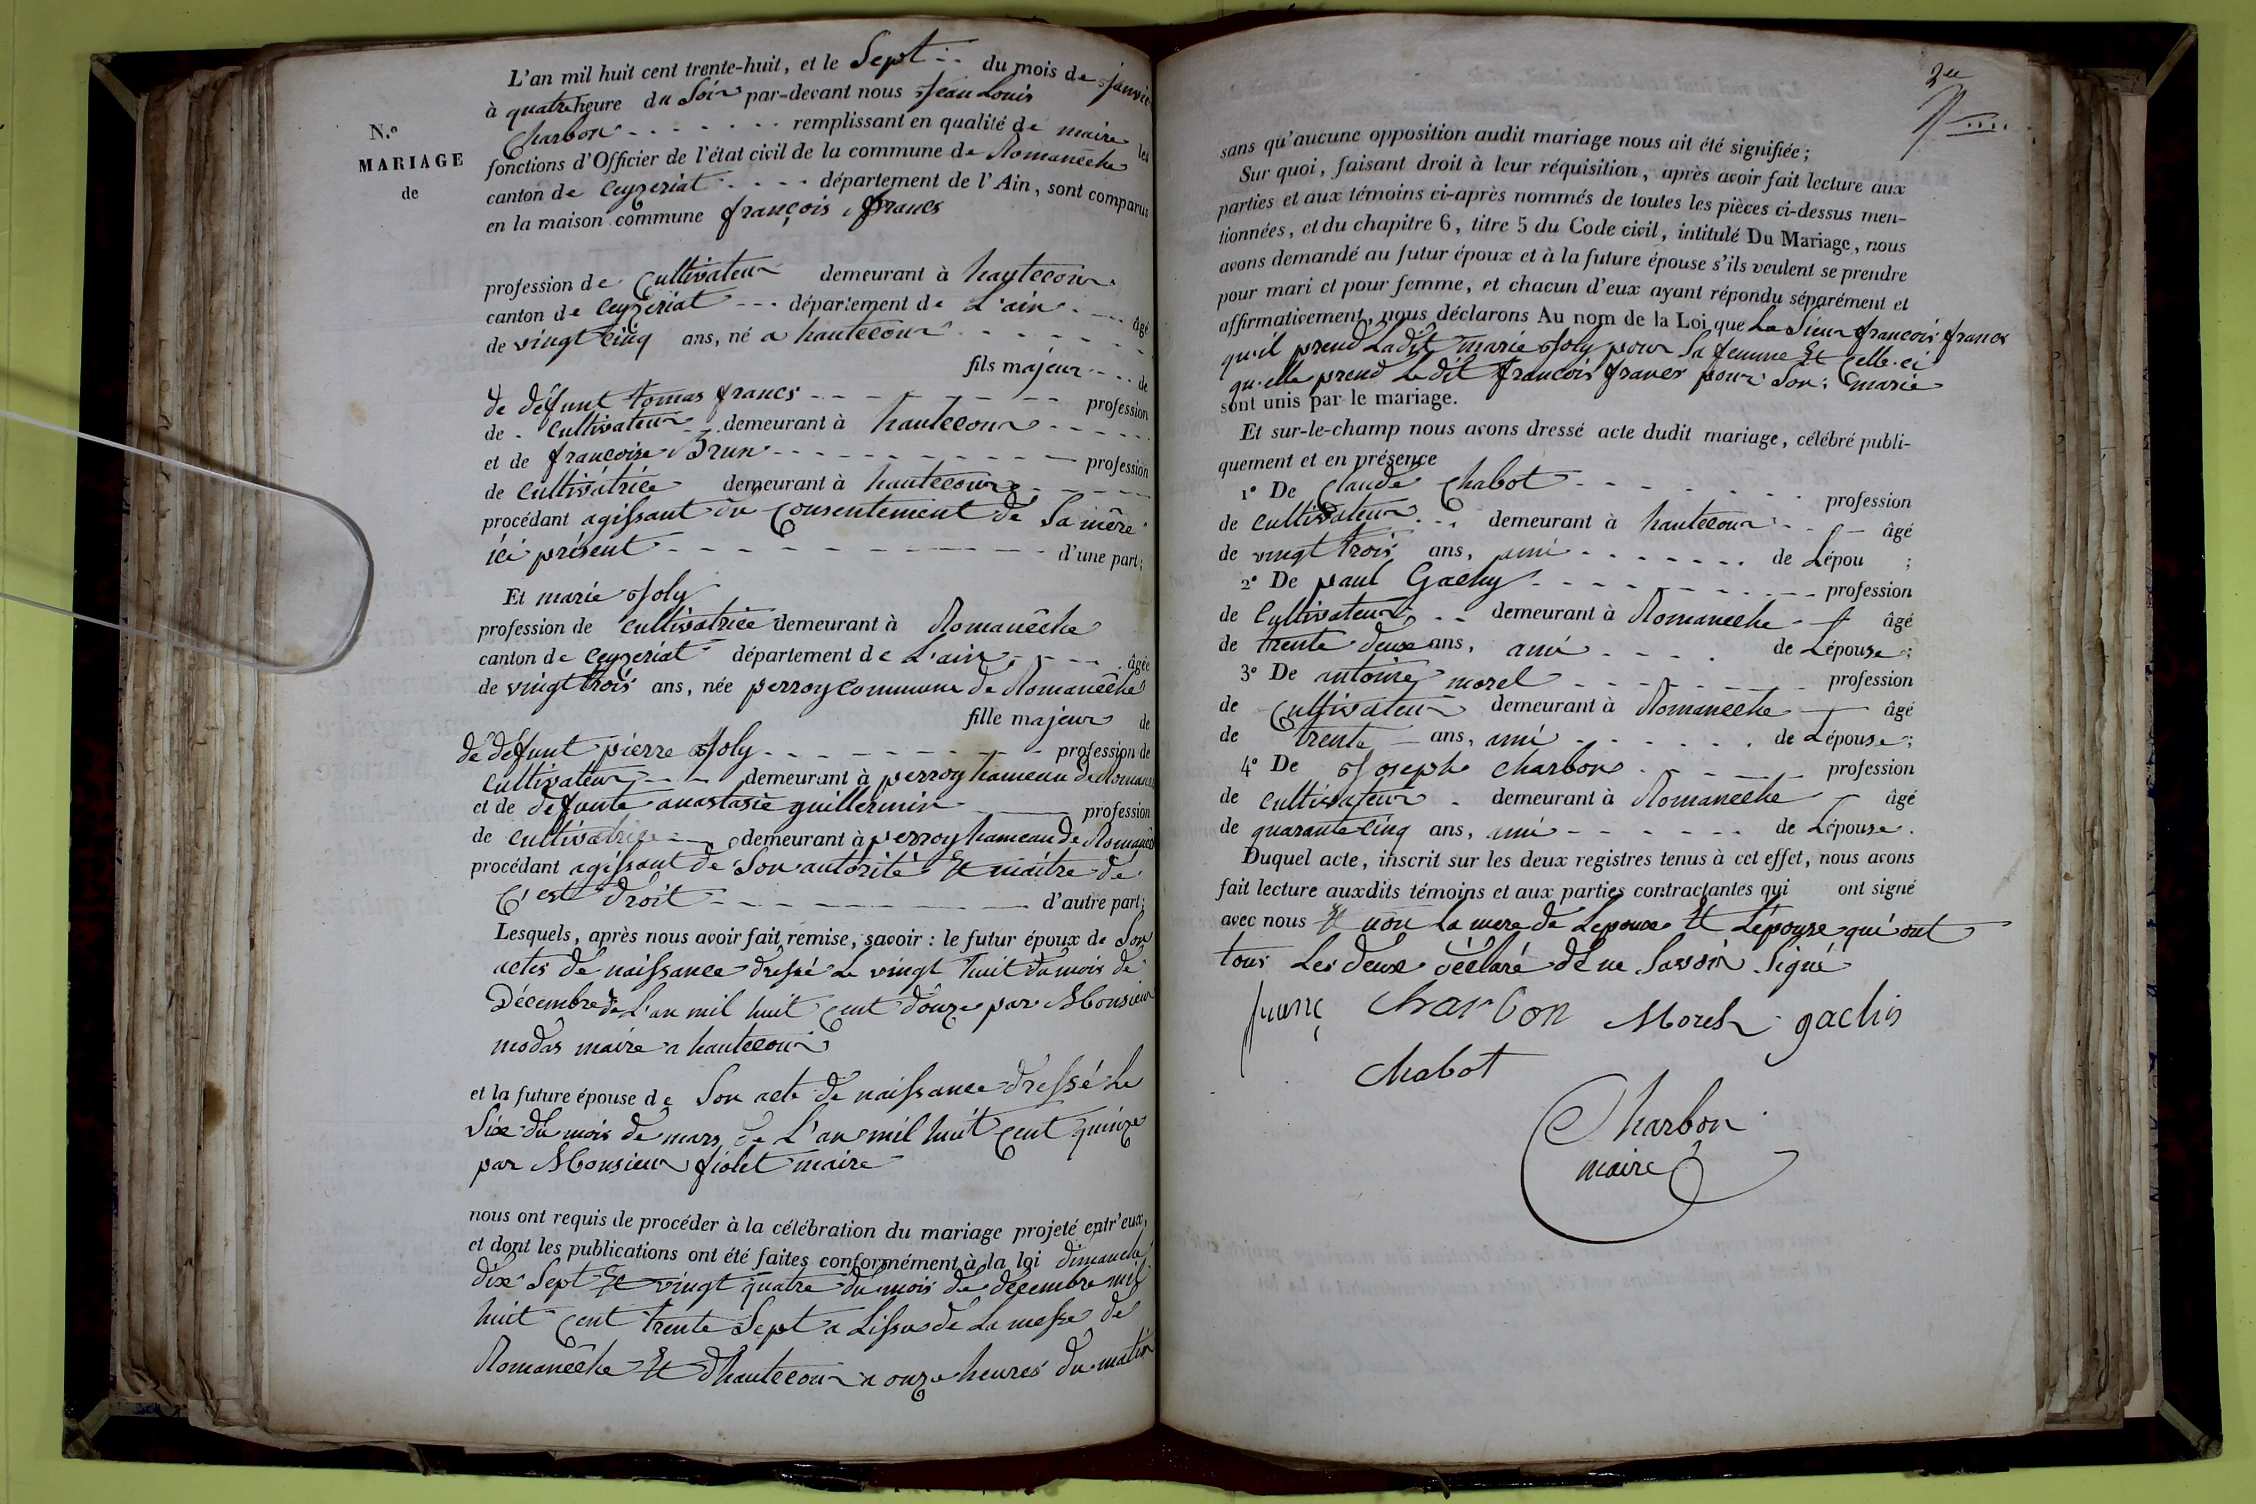 L'an mil huit cent trente-huit, et le Sept du mois de janvier
à quatre heure du Soir par-devant nous Jean Louis
Charbon - - - - - - - remplissant en qualité de maire les
N.o
MARIAGE
de
fonctions d'Officier de l'état civil de la commune de Romanêche
canton de Ceyzeriat - - - - département de l'Ain, sont comparus
en la maison commune françois francs
profession de Cultivateur demeurant à hautecour
canton de Ceyzeriat - - - département de L'ain - - - âgé
de vingt Cinq ans, né a hautecour - - - - - -
fils majeur - - - de
de défunt tomas francs - - - - - - - - - profession
de - Cultivateur demeurant à hautecour - - - - -
et de francoise Brun - - - - - - - - - - - profession
de Cultivatrice demeurant à hautecour - - - - -
procédant agissant du Consentement de Sa mêre
ici présent - - - - - - - - - - - - - d'une part;
Et marie Joly
profession de Cultivatrice demeurant à Romanêche
canton de Ceyzeriat département de L'ain - - - - âgée
de vingt trois ans, née perroy commune de Romanêche
fille majeur de
de défunt pierre Joly - - - - - - - - - profession de
Cultivateur - - - demeurant à perroy hameau de Romane
et de défunte anastasie guillermin profession
de Cultivatrice - - demeurant à perroy hameau de Romanê
procédant agissant de Son autorité Et maitre de
C'est droit - - - - - - - - - - d'autre part;
Lesquels, après nous avoir fait remise, savoir : le futur époux de Son
actes de naissance dressé Le vingt huit du mois de
Décembre de L'an mil huit Cent douze par Monsieur
modas maire a hautecour
et la future épouse de Son acte de naissance dressé Le
Six du mois de mars de L'an mil huit Cent quinze
par Monsieur fiolet maire
nous ont requis de procéder à la célébration du mariage projeté entr'eux,
et dont les publications ont été faites conformément à la loi dimanche
dix Sept Et vingt quatre du mois de décembre mil
huit Cent trente Sept a Lissus de La messe de
Romanêche Et d'hautecour a onze heures du matin
2
sans qu'aucune opposition audit mariage nous ait été signifiée;
Sur quoi, faisant droit à leur réquisition, après avoir fait lecture aux
parties et aux témoins ci-après nommés de toutes les pièces ci-dessus men-
tionnées, et du chapitre 6, titre 5 du Code civil, intitulé Du Mariage, nous
avons demandé au futur époux et à la future épouse s'ils veulent se prendre
pour mari et pour femme, et chacun d'eux ayant répondu séparément et
affirmativement, nous déclarons Au nom de la Loi que Le Sieur francois francs
qu'il prend Ladit marie Joly pour Sa femme Et Celle-ci
qu'elle prend Le dit francois francs pour Son marie
sont unis par le mariage.
Et sur-le-champ nous avons dressé acte dudit mariage, célébré publi-
quement et en présence
1° De Claude Chabot - - - - - - - - profession
de Cultivateur - - - demeurant à hautecour - - - âgé
de vingt trois ans, ami - - - - - - - de Lépou ;
2° De paul Gachy - - - - - - - - - - profession
de Cultivateur - - demeurant à Romaneche - âgé
de trente deux ans, ami - - - - de Lépouse;
3° De antoine morel - - - - - - - - - profession
de Cultivateur demeurant à Romaneche - âgé
de trente - ans, ami - - - - - - de Lépouse;
4° De Joseph Charbon - - - - - profession
de Cultivateur - demeurant à Romaneche - âgé
de quarante Cinq ans, ami - - - - - - de Lépouse.
Duquel acte, inscrit sur les deux registres tenus à cet effet, nous avons
fait lecture auxdits témoins et aux parties contractantes qui ont signé
avec nous Et non la mere de Lepoux Et Lépouse qui ont
tous Les deux déclaré de ne Savoir Signé
franç Charbon Morel gachis
Chabot
Charbon
maire